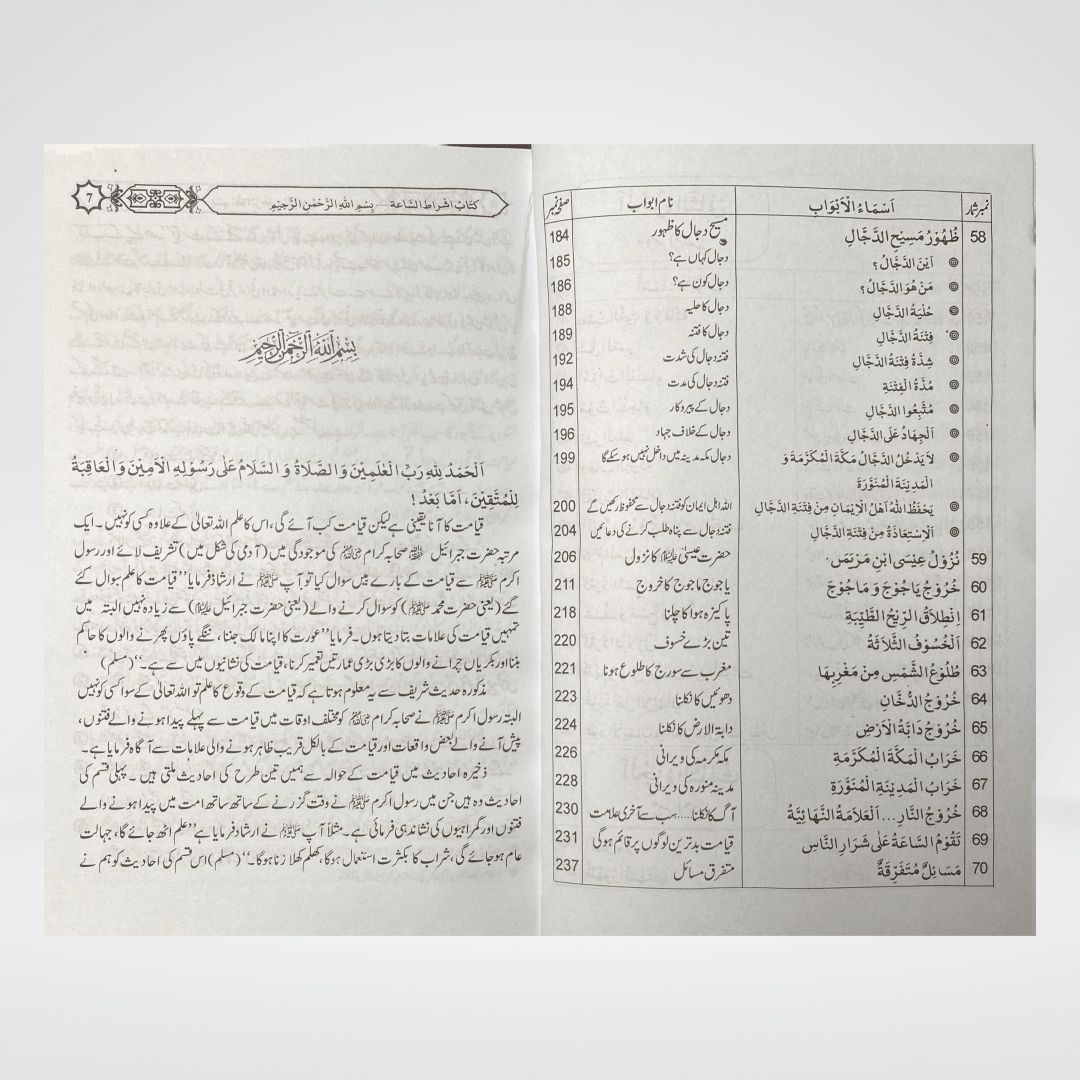 نمبر شمار اَسْمَاءُ الْاَبْوَابِ نام ابواب صفحہ نمبر
58 ظُهُوْرُ مَسِيْحِ الدَّجَّالِ مسیح دجال کا ظہور 184
◎ اَيْنَ الدَّجَّالُ؟ دجال کہاں ہے؟ 185
◎ مَنْ هُوَ الدَّجَّالُ؟ دجال کون ہے؟ 186
◎ حُلْيَةُ الدَّجَّالِ دجال کا حلیہ 188
◎ فِتْنَةُ الدَّجَّالِ دجال کا فتنہ 189
◎ شِدَّةُ فِتْنَةِ الدَّجَّالِ فتنہ دجال کی شدت 192
◎ مُدَّةُ الْفِتْنَةِ فتنہ دجال کی مدت 194
◎ مُتَّبِعُوا الدَّجَّالِ دجال کے پیروکار 195
◎ اَلْجِهَادُ عَلَى الدَّجَّالِ دجال کے خلاف جہاد 196
◎ لاَ يَدْخُلُ الدَّجَّالُ مَكَّةَ الْمُكَرَّمَةَ وَ دجال مکہ مدینہ میں داخل نہیں ہو سکے گا 199
الْمَدِيْنَةَ الْمُنَوَّرَةَ
◎ يَحْفَظُ اللّٰهُ اَهْلَ الْاِيْمَانِ مِنْ فِتْنَةِ الدَّجَّالِ اللہ اہل ایمان کو فتنہ دجال سے محفوظ رکھیں گے 200
◎ اَلْاِسْتِعَاذَةُ مِنْ فِتْنَةِ الدَّجَّالِ فتنہ دجال سے پناہ طلب کرنے کی دعائیں 204
59 نُزُوْلُ عِيْسَى ابْنِ مَرْيَمَ حضرت عیسیٰ علیہ السلام کا نزول 206
60 خُرُوْجُ يَاجُوْجَ وَ مَاجُوْجَ یاجوج ماجوج کا خروج 211
61 اِنْطِلاَقُ الرِّيْحِ الطَّيِّبَةِ پاکیزہ ہوا کا چلنا 218
62 اَلْخُسُوْفُ الثَّلاَثَةُ تین بڑے خسوف 220
63 طُلُوْعُ الشَّمْسِ مِنْ مَغْرِبِهَا مغرب سے سورج کا طلوع ہونا 221
64 خُرُوْجُ الدُّخَانِ دھوئیں کا نکلنا 223
65 خُرُوْجُ دَابَّةُ الْاَرْضِ دابۃ الارض کا نکلنا 224
66 خَرَابُ الْمَكَّةَ الْمُكَرَّمَةِ مکہ مکرمہ کی ویرانی 226
67 خَرَابُ الْمَدِيْنَةِ الْمُنَوَّرَةِ مدینہ منورہ کی ویرانی 228
68 خُرُوْجُ النَّارِ... اَلْعَلاَمَةُ النَّهَائِيَّةُ آگ کا نکلنا.....سب سے آخری علامت 230
69 تَقُوْمُ السَّاعَةُ عَلٰى شَرَارِ النَّاسِ قیامت بدترین لوگوں پر قائم ہوگی 231
70 مَسَائِلٌ مُتَفَرِّقَةٌ متفرق مسائل 237
کتاب اشراط الساعة ..... بِسْمِ اللّٰهِ الرَّحْمٰنِ الرَّحِيْمِ 7
بِسْمِ اللّٰهِ الرَّحْمٰنِ الرَّحِيْمِ
اَلْحَمْدُ لِلّٰهِ رَبِّ الْعٰلَمِيْنَ وَ الصَّلاَةُ وَ السَّلاَمُ عَلٰى رَسُوْلِهِ الْاَمِيْنَ وَ الْعَاقِبَةُ
لِلْمُتَّقِيْنَ ، اَمَّا بَعْدُ !
قیامت کا آنا یقینی ہے لیکن قیامت کب آئے گی، اس کا علم اللہ تعالیٰ کے علاوہ کسی کو نہیں۔ ایک
مرتبہ حضرت جبرائیل علیہ السلام صحابہ کرام رضی اللہ عنہم کی موجودگی میں (آدمی کی شکل میں) تشریف لائے اور رسول
اکرم ﷺ سے قیامت کے بارے میں سوال کیا تو آپ ﷺ نے ارشاد فرمایا ’’قیامت کا علم سوال کئے
گئے (یعنی حضرت محمد ﷺ) کو سوال کرنے والے (یعنی حضرت جبرائیل علیہ السلام) سے زیادہ نہیں البتہ میں
تمہیں قیامت کی علامات بتا دیتا ہوں۔ فرمایا ’’عورت کا اپنا مالک جننا، ننگے پاؤں پھرنے والوں کا حاکم
بننا اور بکریاں چرانے والوں کا بڑی بڑی عمارتیں تعمیر کرنا، قیامت کی نشانیوں میں سے ہے۔‘‘ (مسلم)
مذکورہ حدیث شریف سے یہ معلوم ہوتا ہے کہ قیامت کے وقوع کا علم تو اللہ تعالیٰ کے سوا کسی کو نہیں
البتہ رسول اکرم ﷺ نے صحابہ کرام رضی اللہ عنہم کو مختلف اوقات میں قیامت سے پہلے پیدا ہونے والے فتنوں،
پیش آنے والے بعض واقعات اور قیامت کے بالکل قریب ظاہر ہونے والی علامات سے آگاہ فرمایا ہے۔
ذخیرہ احادیث میں قیامت کے حوالہ سے ہمیں تین طرح کی احادیث ملتی ہیں۔ پہلی قسم کی
احادیث وہ ہیں جن میں رسول اکرم ﷺ نے وقت گزرنے کے ساتھ ساتھ امت میں پیدا ہونے والے
فتنوں اور گمراہیوں کی نشاندہی فرمائی ہے۔ مثلاً آپ ﷺ نے ارشاد فرمایا ہے ’’علم اٹھ جائے گا، جہالت
عام ہو جائے گی، شراب کا بکثرت استعمال ہوگا، کھلم کھلا زنا ہوگا۔‘‘ (مسلم) اس قسم کی احادیث کو ہم نے